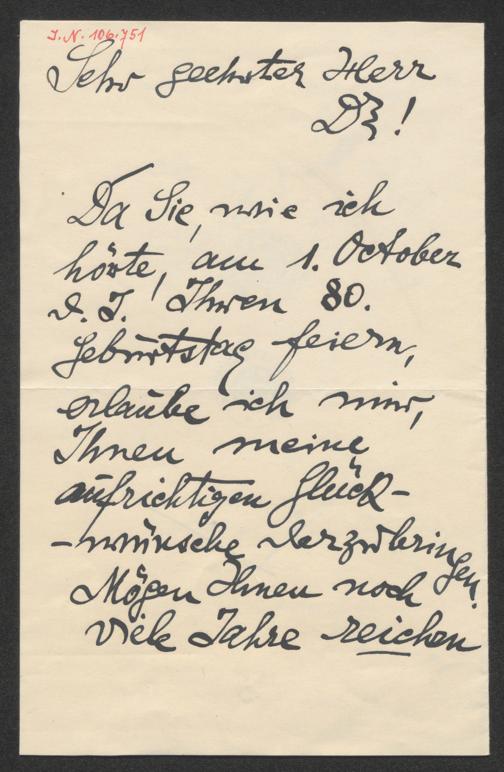 J. N. 106.751
Sehr geehrter Herr
Dr!
Da Sie, wie ich
hörte, am 1. October
d. J. Ihren 80.
Geburtstag feiern,
erlaube ich mir,
Ihnen meine
aufrichtigen Glück-
-wünsche darzubringen.
Mögen Ihnen noch
viele Jahre reichen